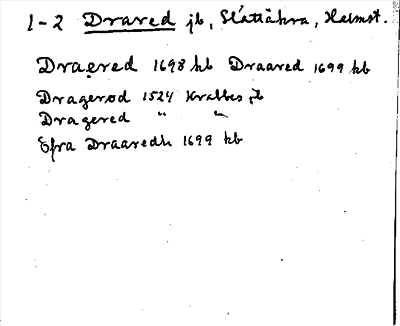 1-2 Drared jb, Slättåkra, Halmst.
Draered 1698 kb Draared 1699 kb
Dragerod 1524 Krabbes jb
Dragered " "
Öfra Draaredh 1699 kb